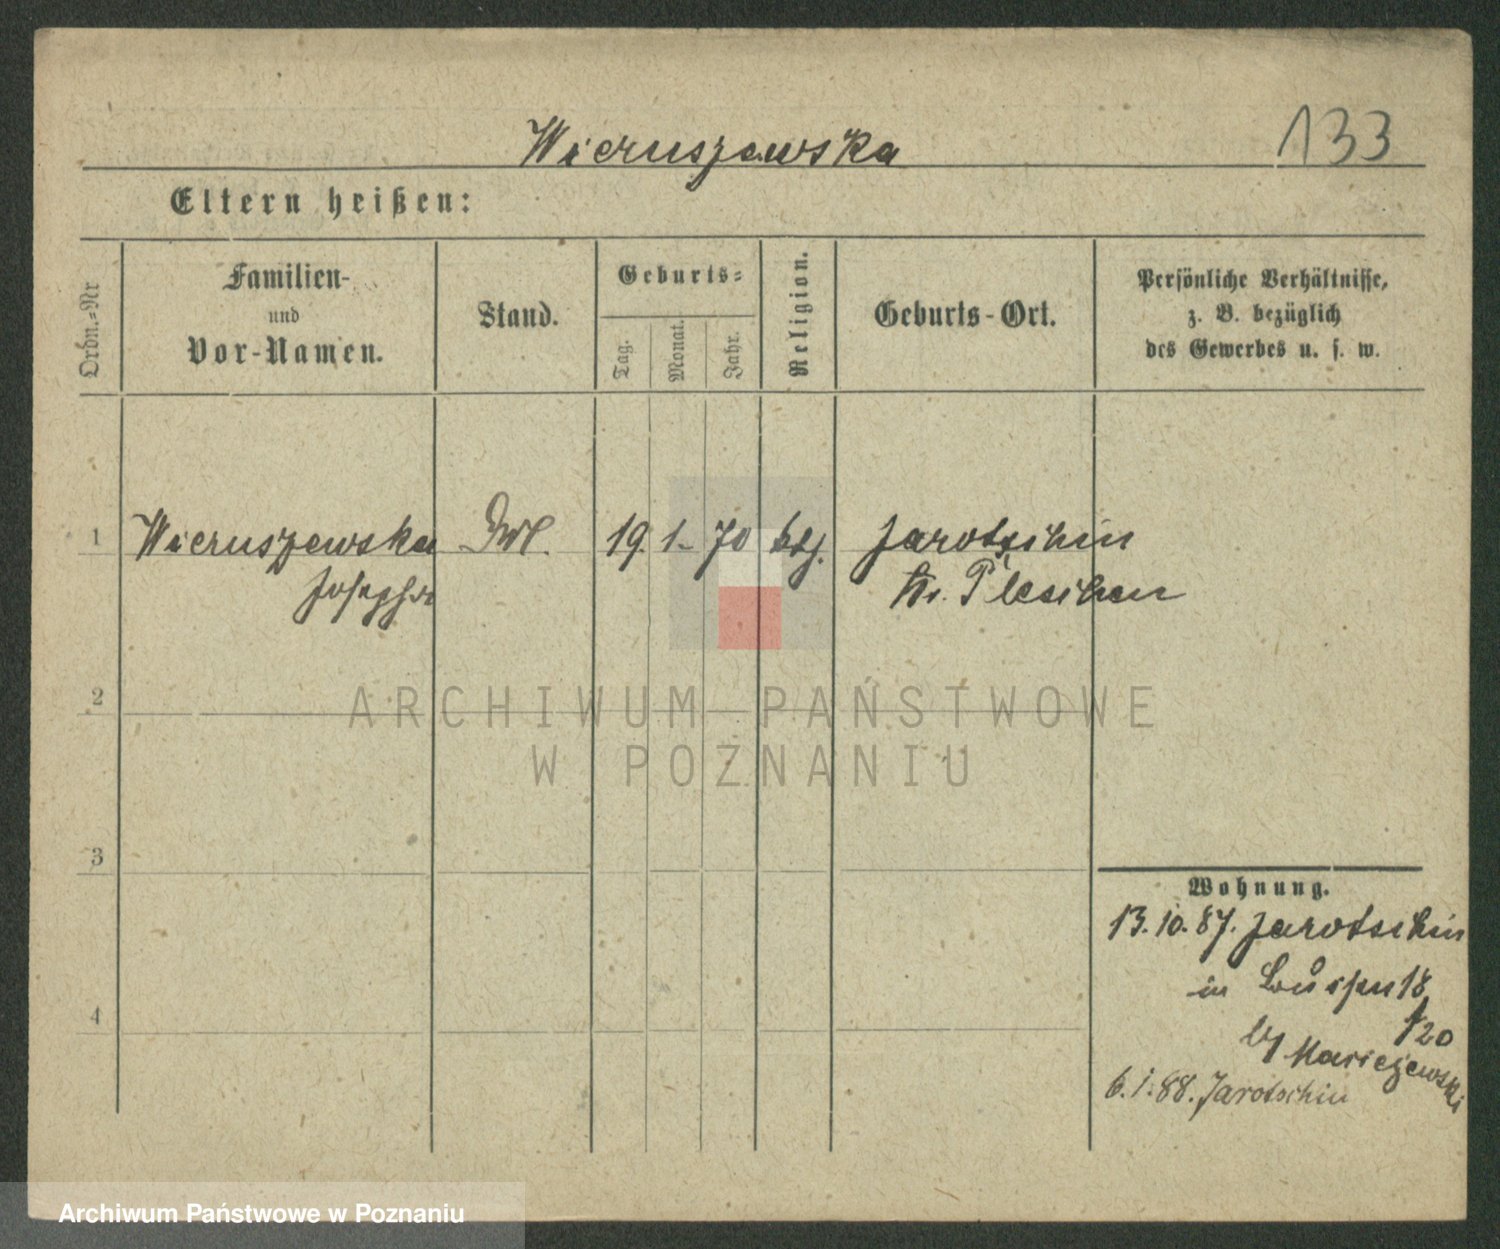 Wieruszewska 133
Eltern heißen:
Ordn.-Nr
Familien-
und
Vor-Namen.
Stand.
Geburts-
Tag.
Monat.
Jahr.
Religion.
Geburts-Ort.
Persönliche Verhältnisse,
z. B. bezüglich
des Gewerbes u. s. w.
1 Wieruszewska 19. 1. 70 Jarotschin
Josepha Kr. Pleschen
2
ARCHIWUM PAŃSTWOWE
W POZNANIU
3
Wohnung.
13.10.87. Jarotschin
in 18
4
20
6.1.88. Jarotschin
Archiwum Państwowe w Poznaniu